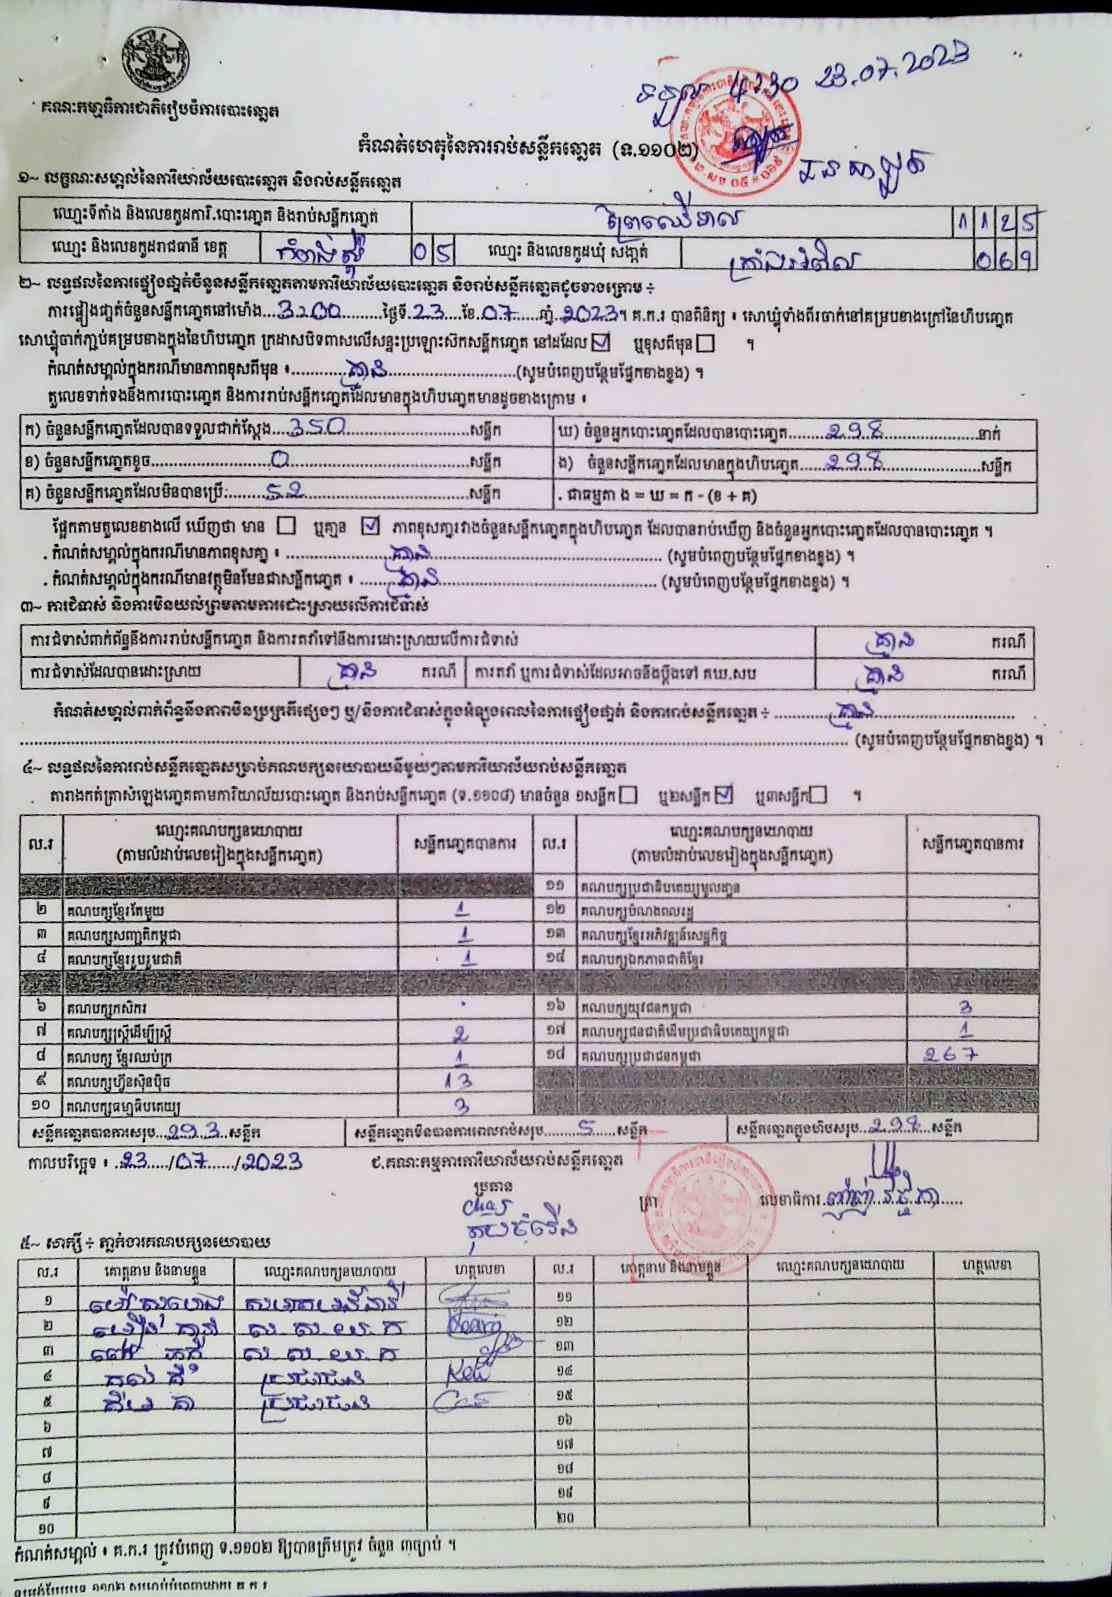 គណៈកម្មាធិការជាតិរៀបចំការបោះឆ្នោត
ទទួល 4:30 23.07.2023
កំណត់ហេតុនៃការរាប់សន្លឹកឆ្នោត (ទ.១១០២)
១~ លក្ខណៈសម្គាល់នៃការិយាល័យបោះឆ្នោត និងរាប់សន្លឹកឆ្នោត
ឈ្មោះទីតាំង និងលេខកូដការិ.បោះឆ្នោត និងរាប់សន្លឹកឆ្នោត ព្រៃឈើទាល 1125
ឈ្មោះ និងលេខកូដរាជធានី ខេត្ត កំពង់ស្ពឺ 05 ឈ្មោះ និងលេខកូដឃុំ សង្កាត់ 069
២~ លទ្ធផលនៃការផ្ទៀងផ្ទាត់ចំនួនសន្លឹកឆ្នោតតាមការិយាល័យបោះឆ្នោត និងរាប់សន្លឹកឆ្នោតដូចខាងក្រោម ÷
ការផ្ទៀងផ្ទាត់ចំនួនសន្លឹកឆ្នោតនៅម៉ោង...3:00...ថ្ងៃទី.23...ខែ.07...ឆ្នាំ.2023។ គ.ក.រ បានពិនិត្យ ៖ សោឃ្លុំទាំងពីរចាក់នៅគម្របខាងក្រៅនៃហិបឆ្នោត
សោឃ្លុំចាក់ភ្ជាប់គម្របខាងក្នុងនៃហិបឆ្នោត ក្រដាសបិទពាសលើសន្ទះប្រឡោះស៊កសន្លឹកឆ្នោត នៅដដែល ☑ ឬខុសពីមុន ☐ ។
កំណត់សម្គាល់ក្នុងករណីមានភាពខុសពីមុន ៖...គ្មាន...(សូមបំពេញបន្ថែមផ្នែកខាងខ្នង) ។
តួលេខទាក់ទងនឹងការបោះឆ្នោត និងការរាប់សន្លឹកឆ្នោតដែលមានក្នុងហិបឆ្នោតមានដូចខាងក្រោម ៖
ក) ចំនួនសន្លឹកឆ្នោតដែលបានទទួលជាក់ស្តែង...350...សន្លឹក ឃ) ចំនួនអ្នកបោះឆ្នោតដែលបានបោះឆ្នោត...298...នាក់
ខ) ចំនួនសន្លឹកឆ្នោតខូច...0...សន្លឹក ង) ចំនួនសន្លឹកឆ្នោតដែលមានក្នុងហិបឆ្នោត...298...សន្លឹក
គ) ចំនួនសន្លឹកឆ្នោតដែលមិនបានប្រើ:...52...សន្លឹក . ជាធម្មតា ង = ឃ = ក - (ខ + គ)
ផ្អែកតាមតួលេខខាងលើ ឃើញថា មាន ☐ ឬគ្មាន ☑ ភាពខុសគ្នារវាងចំនួនសន្លឹកឆ្នោតក្នុងហិបឆ្នោត ដែលបានរាប់ឃើញ និងចំនួនអ្នកបោះឆ្នោតដែលបានបោះឆ្នោត ។
. កំណត់សម្គាល់ក្នុងករណីមានភាពខុសគ្នា ៖ ...គ្មាន... (សូមបំពេញបន្ថែមផ្នែកខាងខ្នង) ។
. កំណត់សម្គាល់ក្នុងករណីមានវត្ថុមិនមែនជាសន្លឹកឆ្នោត ៖ ...គ្មាន... (សូមបំពេញបន្ថែមផ្នែកខាងខ្នង) ។
៣~ ការជំទាស់ និងការមិនយល់ព្រមតាមការដោះស្រាយលើការជំទាស់
ការជំទាស់ពាក់ព័ន្ធនឹងការរាប់សន្លឹកឆ្នោត និងការតវ៉ាទៅនឹងការដោះស្រាយលើការជំទាស់ គ្មាន ករណី
ការជំទាស់ដែលបានដោះស្រាយ គ្មាន ករណី ការតវ៉ា ឬការជំទាស់ដែលអាចនឹងប្តឹងទៅ គឃ.សប គ្មាន ករណី
កំណត់សម្គាល់ពាក់ព័ន្ធនឹងភាពមិនប្រក្រតីផ្សេងៗ ឬ/និងការជំទាស់ក្នុងអំឡុងពេលនៃការផ្ទៀងផ្ទាត់ និងការរាប់សន្លឹកឆ្នោត ÷ ...គ្មាន...
... (សូមបំពេញបន្ថែមផ្នែកខាងខ្នង) ។
៤~ លទ្ធផលនៃការរាប់សន្លឹកឆ្នោតសម្រាប់គណបក្សនយោបាយនីមួយៗតាមការិយាល័យរាប់សន្លឹកឆ្នោត
តារាងកត់ត្រាសំឡេងឆ្នោតតាមការិយាល័យបោះឆ្នោត និងរាប់សន្លឹកឆ្នោត (ទ.១១០៨) មានចំនួន ១សន្លឹក ☐ ឬ២សន្លឹក ☑ ឬ៣សន្លឹក ☐ ។
ល.រ ឈ្មោះគណបក្សនយោបាយ (តាមលំដាប់លេខរៀងក្នុងសន្លឹកឆ្នោត) សន្លឹកឆ្នោតបានការ ល.រ ឈ្មោះគណបក្សនយោបាយ (តាមលំដាប់លេខរៀងក្នុងសន្លឹកឆ្នោត) សន្លឹកឆ្នោតបានការ
១១ គណបក្សប្រជាធិបតេយ្យមូលដ្ឋាន
២ គណបក្សខ្មែរតែមួយ 1 ១២ គណបក្សបំណងពលរដ្ឋ
៣ គណបក្សសញ្ជាតិកម្ពុជា 1 ១៣ គណបក្សខ្មែរអភិវឌ្ឍន៍សេដ្ឋកិច្ច
៤ គណបក្សខ្មែររួបរួមជាតិ 1 ១៤ គណបក្សឯកភាពជាតិខ្មែរ
៦ គណបក្សកសិករ . ១៦ គណបក្សយុវជនកម្ពុជា 3
៧ គណបក្សស្ត្រីដើម្បីស្ត្រី 2 ១៧ គណបក្សជនជាតិដើមប្រជាធិបតេយ្យកម្ពុជា 1
៨ គណបក្ស ខ្មែរឈប់ក្រ 1 ១៨ គណបក្សប្រជាជនកម្ពុជា 267
៩ គណបក្សហ្វ៊ុនស៊ិនប៉ិច 13
១០ គណបក្សធម្មាធិបតេយ្យ 3
សន្លឹកឆ្នោតបានការសរុប...293...សន្លឹក សន្លឹកឆ្នោតមិនបានការពេលរាប់សរុប...5...សន្លឹក សន្លឹកឆ្នោតក្នុងហិបសរុប...298...សន្លឹក
កាលបរិច្ឆេទ ៖ .23...../07....../2023 ជ.គណៈកម្មការការិយាល័យរាប់សន្លឹកឆ្នោត
ប្រធាន
ត្រា លេខាធិការ
៥~ សាក្សី ÷ ភ្នាក់ងារគណបក្សនយោបាយ
ល.រ គោត្តនាម និងនាមខ្លួន ឈ្មោះគណបក្សនយោបាយ ហត្ថលេខា ល.រ គោត្តនាម និងនាមខ្លួន ឈ្មោះគណបក្សនយោបាយ ហត្ថលេខា
១ ១១
២ ស.ស.យ.ក ១២
៣ ស.ស.យ.ក ១៣
៤ ប្រជាជន ១៤
៥ ប្រជាជន ១៥
៦ ១៦
៧ ១៧
៨ ១៨
៩ ១៩
១០ ២០
កំណត់សម្គាល់ ៖ គ.ក.រ ត្រូវបំពេញ ទ.១១០២ ឱ្យបានត្រឹមត្រូវ ចំនួន ៣ច្បាប់ ។